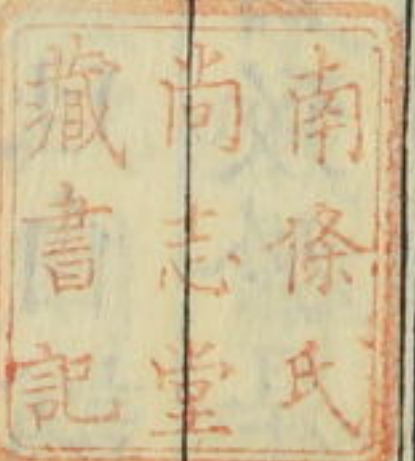 南條氏
尚志堂
藏書記